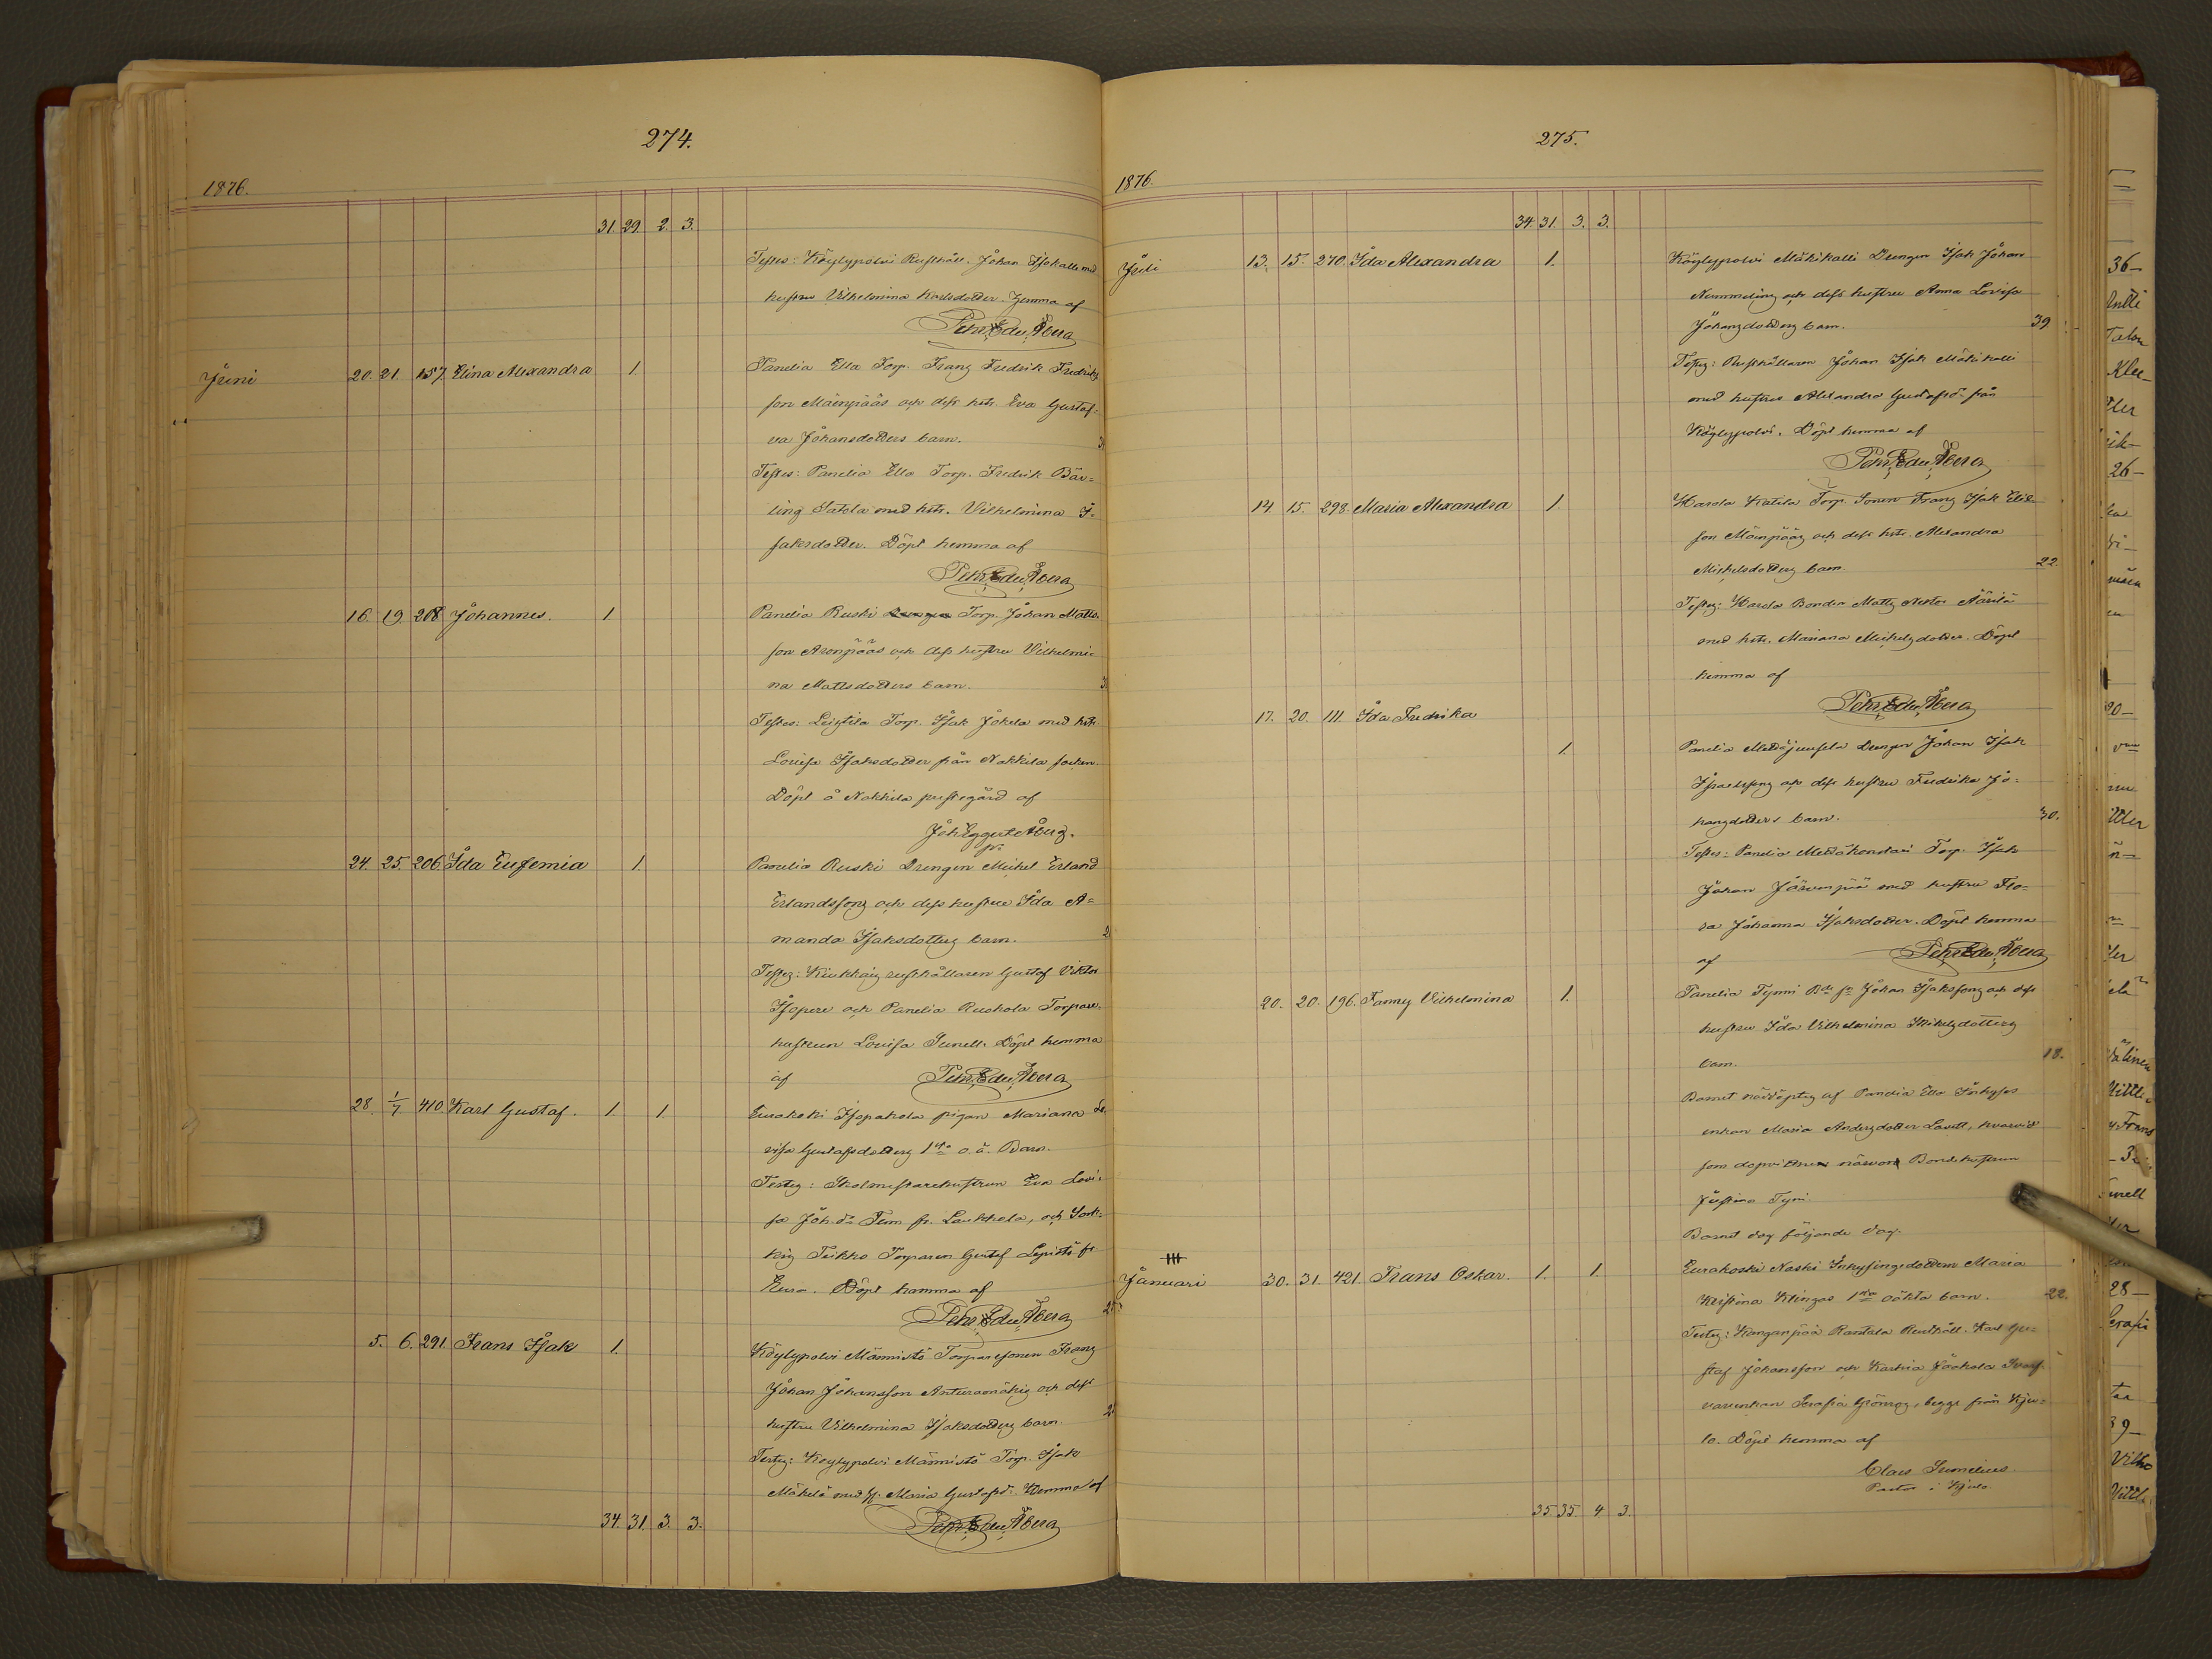 274.
1876.
31. 29. 2. 3.
Testes: Köylypolvi Rusthåll. Johan Isokalli med
hustru Vilhelmina Karlsdotter. Hemma af
Petr. Edv. Åberg
Juni 20. 21. 157. Elina Alexandra 1. Panelia Ella Torp. Franz Fredrik Fredriks
son Mäenpääs och dess hstr. Eva Gustaf-
va Johansdotters barn.
Testes: Panelia Ella Torp. Fredrik Bär-
ling Satola med hstr. Vilhelmina I-
saksdotter. Döpt hemma af
Petr. Edv. Åberg
16. 19. 208 Johannes. 1 Panelia Ruski Torp. Johan Matts-
son Aronpääs och dess hustru Vilhelmi-
na Mattsdotters barn.
Testes: Leistila Torp. Isak Jokela med hstr
Lovisa Isaksdotter från Nakkila socken.
Döpt å Nakkila prestegård af
Joh Eggert Åberg.
pr.
24. 25. 206. Ida Eufemia 1. Panelia Ruski Drengen Mickel Erland
Erlandssons och dess hustru Ida A-
manda Isaksdotters barn.
Testes: Kiukkais rusthållaren Gustaf Viktor
Isopere och Panelia Ruohola Torpare-
hustrun Lovisa Sunell. Döpt hemma
af Petr. Edv. Åberg
28. 1/7 410. Karl Gustaf. 1. 1. Euraåki Isopakola pigan Mariana Lo-
visa Gustafsdotters 1sta o. ä. Barn.
Testes: Skolmästarehustrun Eva Lovi-
sa Joh.dr Tem fr. Laukkola, och York-
kis Teikko Torparen Gustaf Lepistö fr
Eura. Döpt hemma af
Petr. Edv. Åberg
5. 6. 291. Frans Isak 1. Köylypolvi Männistö Torparesonen Franz
Johan Johansson Anturamäkis och dess
hustru Vilhelmina Isaksdotters barn.
Testes: Köylypolvi Männistö Torp. Isak
Mäkelä med H. Maria Gustafsd: Hemma af
34. 31. 3. 3. Petr. Edv. Åberg
275.
1876.
34. 31. 3. 3.
Juli 13. 15. 270. Ida Alexandra 1. Köylypolvi Mäkikalli Drengen Isak Johan
Nummelins och dess hustru Anna Lovisa
Johansdotters barn. 39
Testes: Rusthållaren Johan Isak Mäkikalli
med hustru Alexandra Gustafsd från
Köylypolvi. Döpt hemma af
Petr. Edv. Åberg
14. 15. 298. Maria Alexandra 1. Harola Kaitila Torp. Sonen Franz Isak Elis-
son Mäenpääs och dess hstr. Alexandra
Mickelsdotters barn. 22.
Testes: Harola Bonden Matts Nestor Äärilä
med hstr. Mariana Mickelsdotter. Döpt
hemma af
Petr. Edv. Åberg
17. 20. 111. Ida Fredrika
1. Panelia Mattäjuusela Drengen Johan Isak
Israelssons och dess hustru Fredrika Jo-
hansdotters barn. 30.
Testes: Panelia Mattäkondari Torp. Isak
Johan Järvenpää med hustru Flo-
ra Johanna Isaksdotter. Döpt hemma
af Petr. Edv. Åberg
20. 20. 196. Fanny Vilhelmina 1. Panelia Tynni Bde sn Johan Isakssons och dess
hustru Ida Vilhelmina Mikelsdotters
barn. 18.
Barnet nöddöptes af Panelia Ella Inhyses
enkan Maria Andersdotter Lavett, hvarvid
som dopvittnen närvar Bondehustrun
Justina Tyni.
Barnet dog följande dag.
Januari 30. 31. 421. Frans Oskar. 1. 1. Eurakoski Naski Inhysingsdottern Maria
Kristina Klingas 1sta oäkta barn. 22.
Testes: Kangasjää Rantala Rusthåll. Karl Gu-
staf Johansson och Karhia Jaakola Svarf-
vareenkan Serafia Grönros, begge från Kju-
lo. Döpt hemma af
Claes Sumelius
Pastor i Kjulo.
35. 35. 4. 3.
36-
Klee-
26-
28-